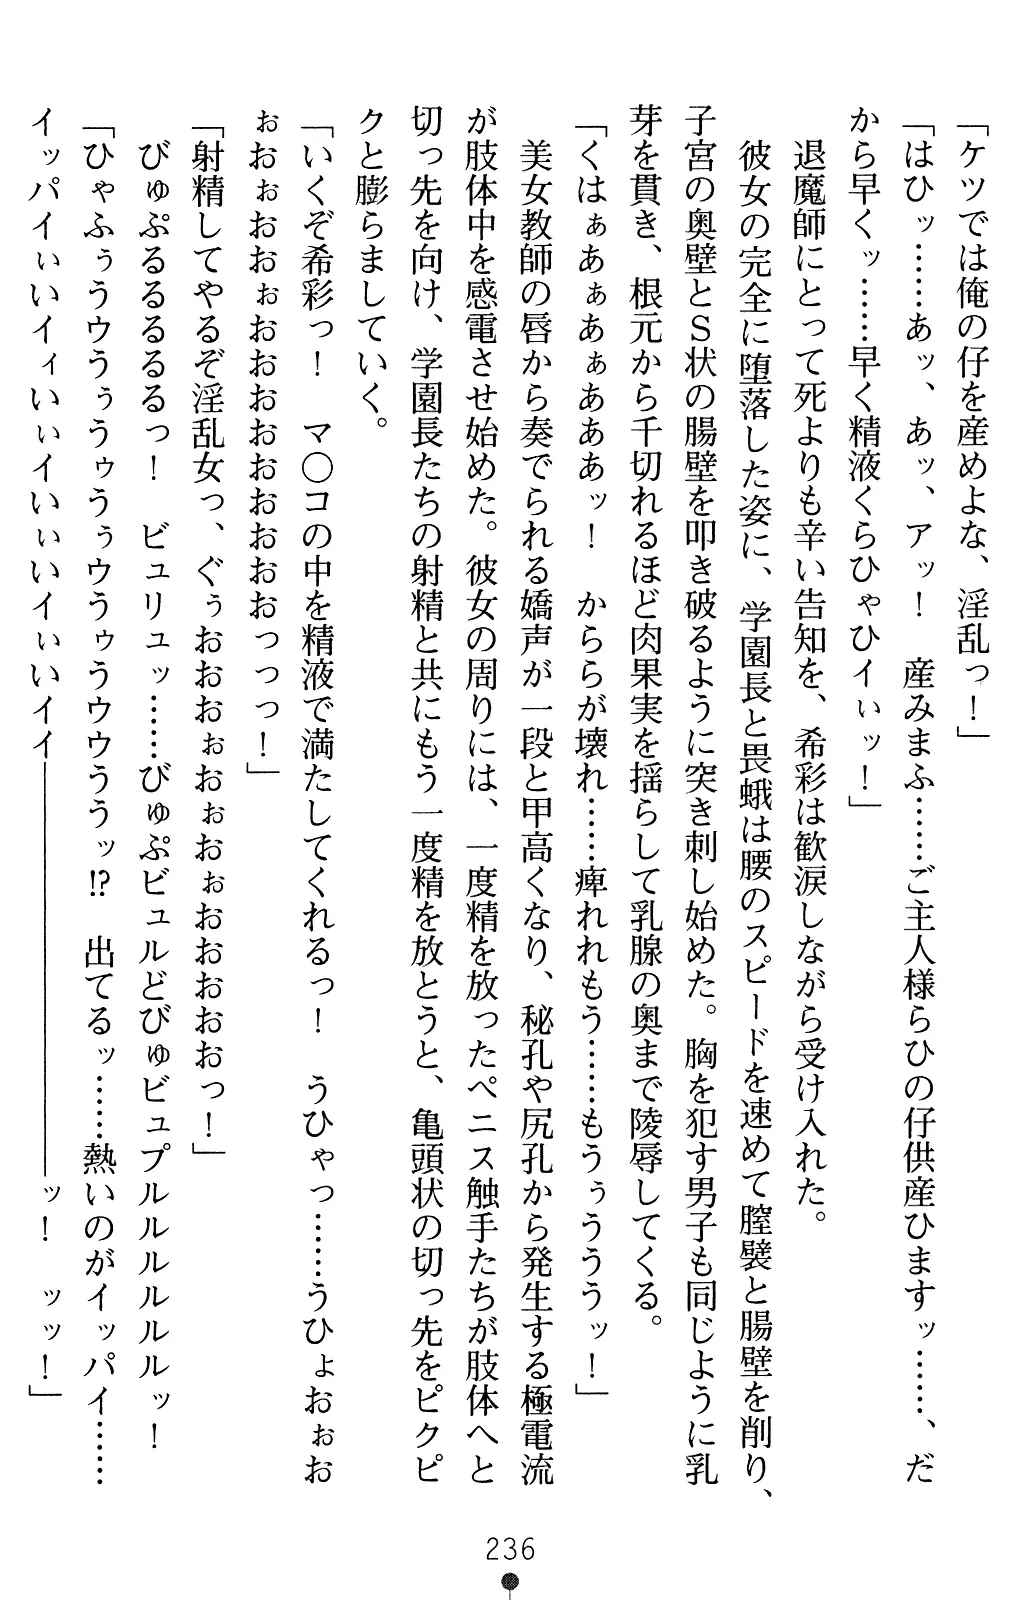 「ケツでは俺の仔を産めよな、淫乱っ！」
「はひッ……あッ、あッ、アッ！　産みまふ……ご主人様らひの仔供産ひますッ……、だ
から早くッ……早く精液くらひゃひイぃッ！」
退魔師にとって死よりも辛い告知を、希彩は歓涙しながら受け入れた。
彼女の完全に堕落した姿に、学園長と畏蛾は腰のスピードを速めて膣襞と腸壁を削り、
子宮の奥壁とＳ状の腸壁を叩き破るように突き刺し始めた。胸を犯す男子も同じように乳
芽を貫き、根元から千切れるほど肉果実を揺らして乳腺の奥まで陵辱してくる。
「くはぁあぁあぁああぁッ！　かららが壊れ……痺れれもう……もうぅううぅッ！」
美女教師の唇から奏でられる嬌声が一段と甲高くなり、秘孔や尻孔から発生する極電流
が肢体中を感電させ始めた。彼女の周りには、一度精を放ったペニス触手たちが肢体へと
切っ先を向け、学園長たちの射精と共にもう一度精を放とうと、亀頭状の切っ先をピクピ
クと膨らましていく。
「いくぞ希彩っ！　マ〇コの中を精液で満たしてくれるっ！　うひゃっ……うひょおぉお
ぉおぉおおぉおおおおおおおおっっっ！」
「射精してやるぞ淫乱女っ、ぐぅおおおぉおぉおぉおおおおっ！」
びゅぷるるるるっ！　ビュリュッ……びゅぷビュルどびゅビュプルルルルルッ！
「ひゃふぅうウうぅうゥうぅウうゥうウウううッ!?　出てるッ……熱いのがイッパイ……
イッパイぃいイィいぃイいぃいイぃいイイ――――――――ッ！　ッッ！」
236